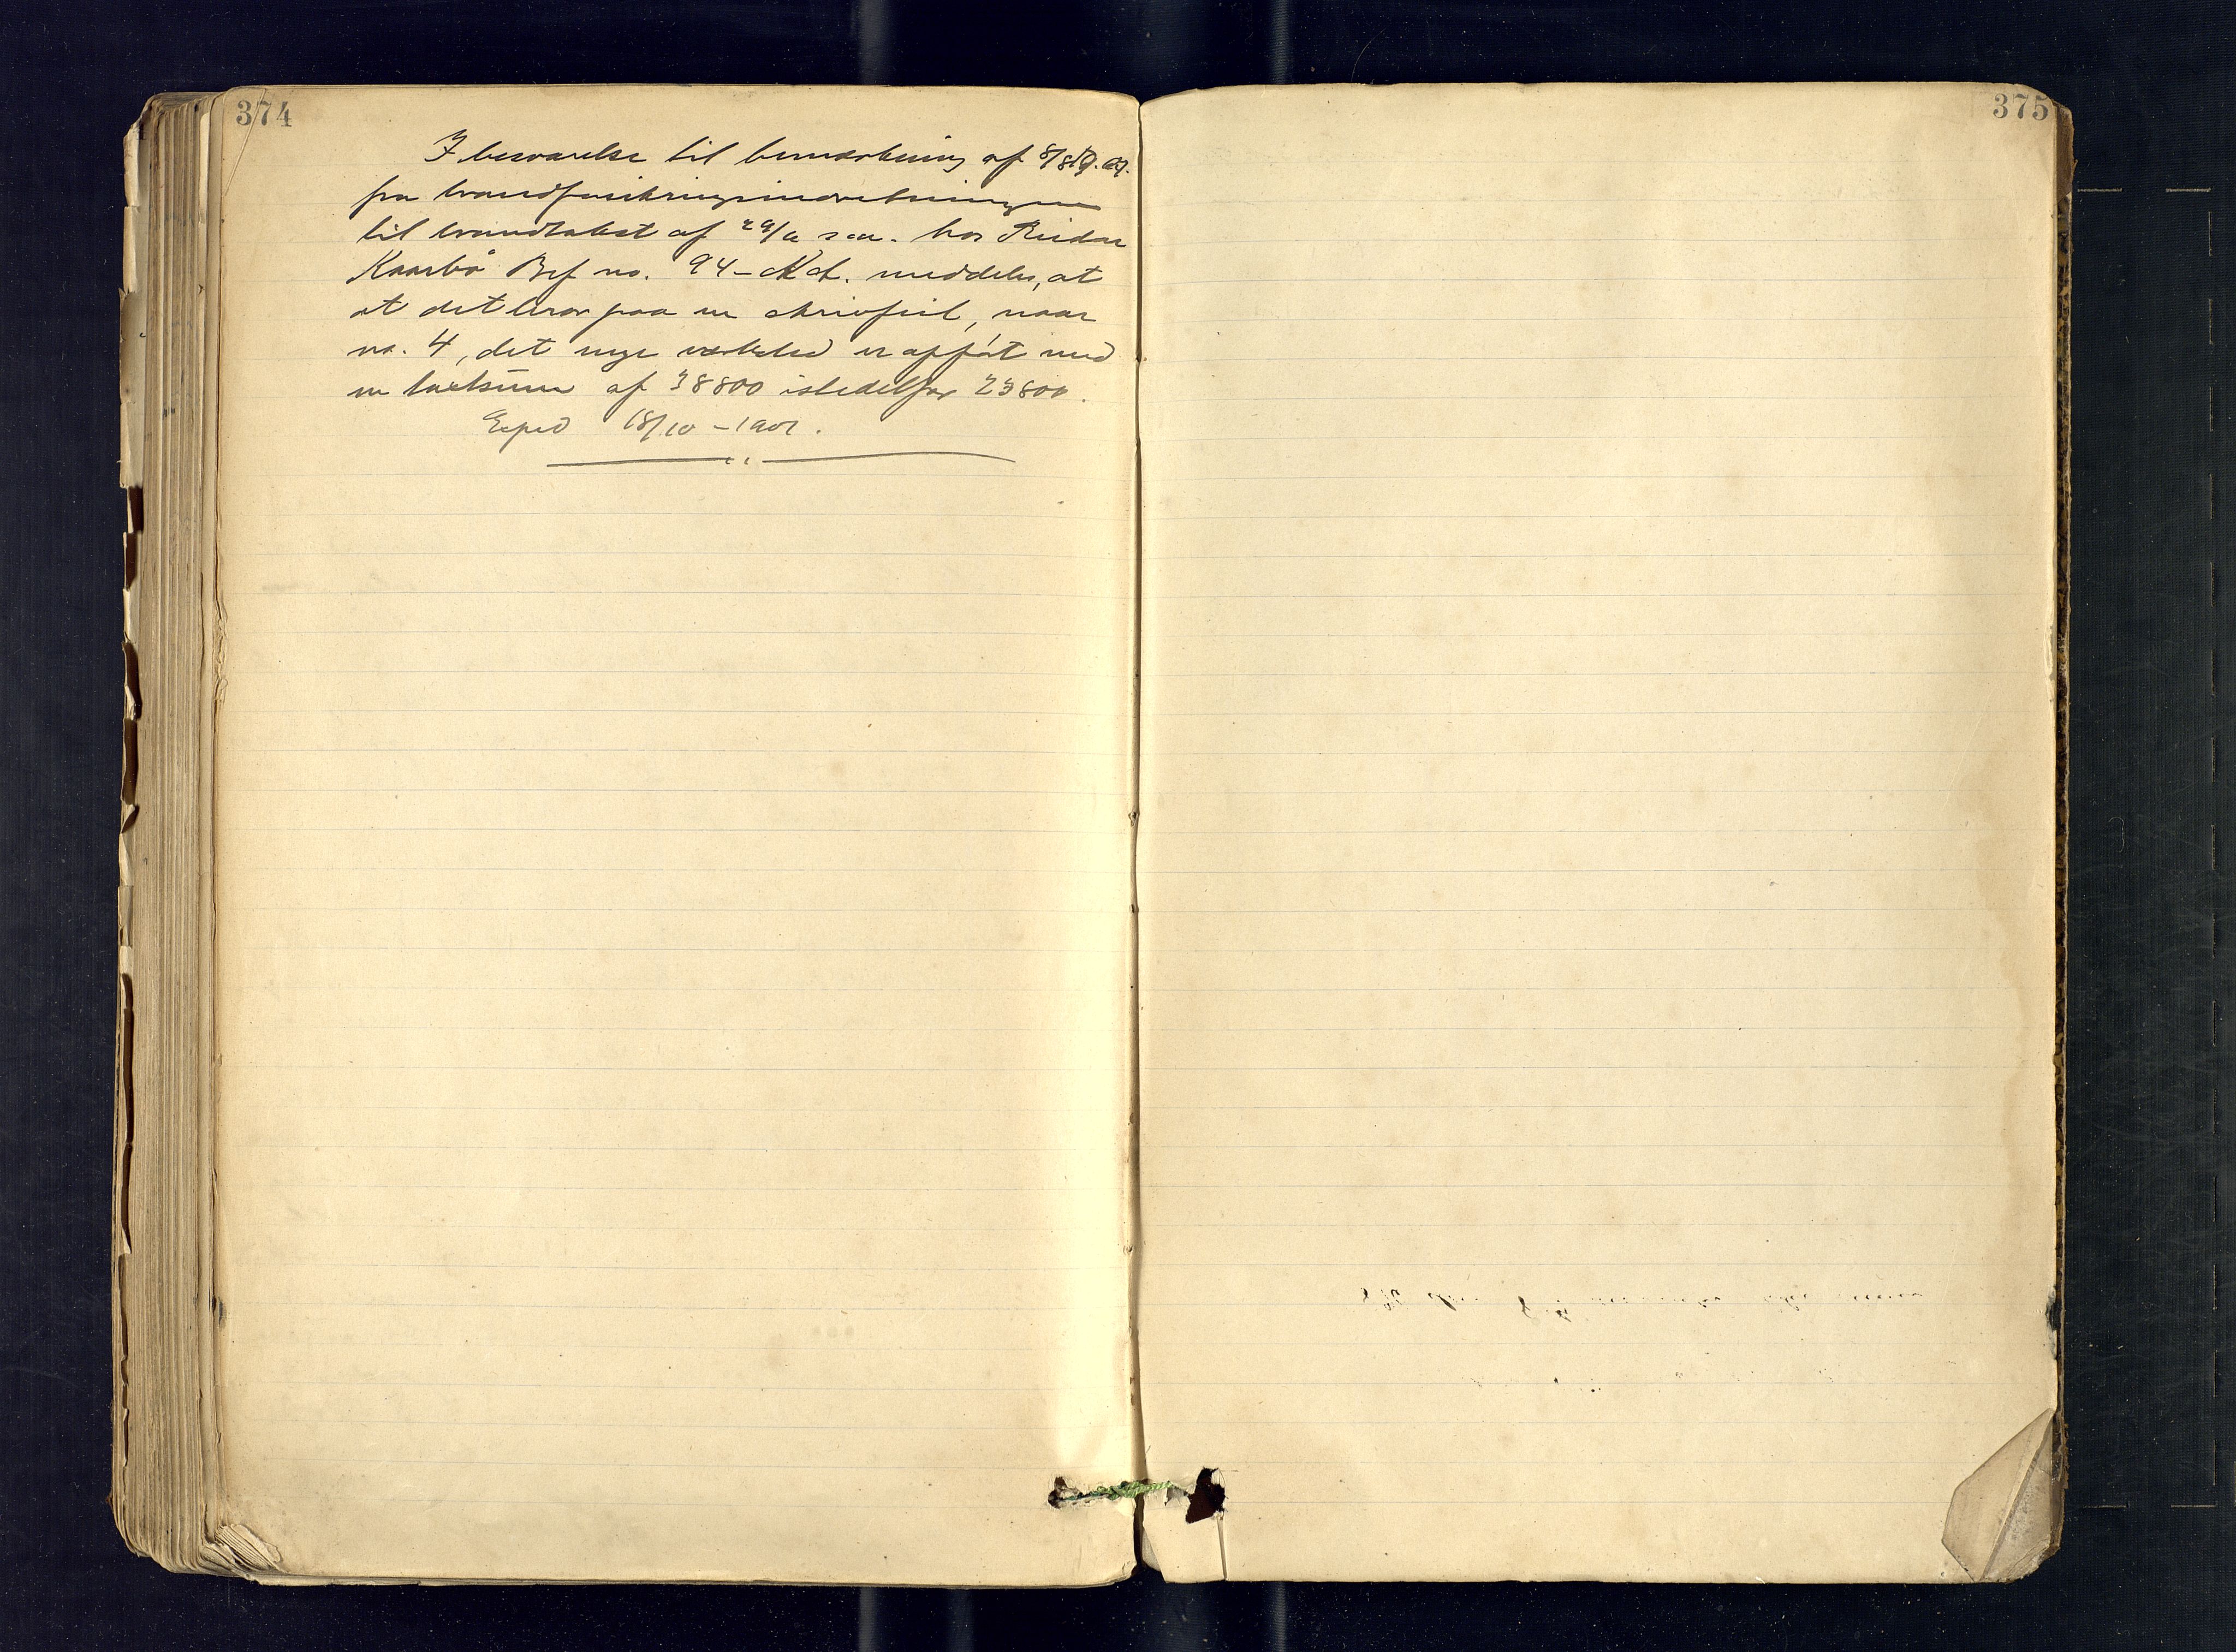 374
I besvarelse til bemerkning af 8/8
fra brandforsikringsindretningen
til brandtakst af 29/6 s.a. hos Reidar
Kaarbø Bef no. 94 meddeles, at
at det beror paa en skrivfeil, naar
no. 4, det nye verksted er opført med
en takstsum af 38800 istedetfor 23800.
Exped 18/10 - 1901.
375